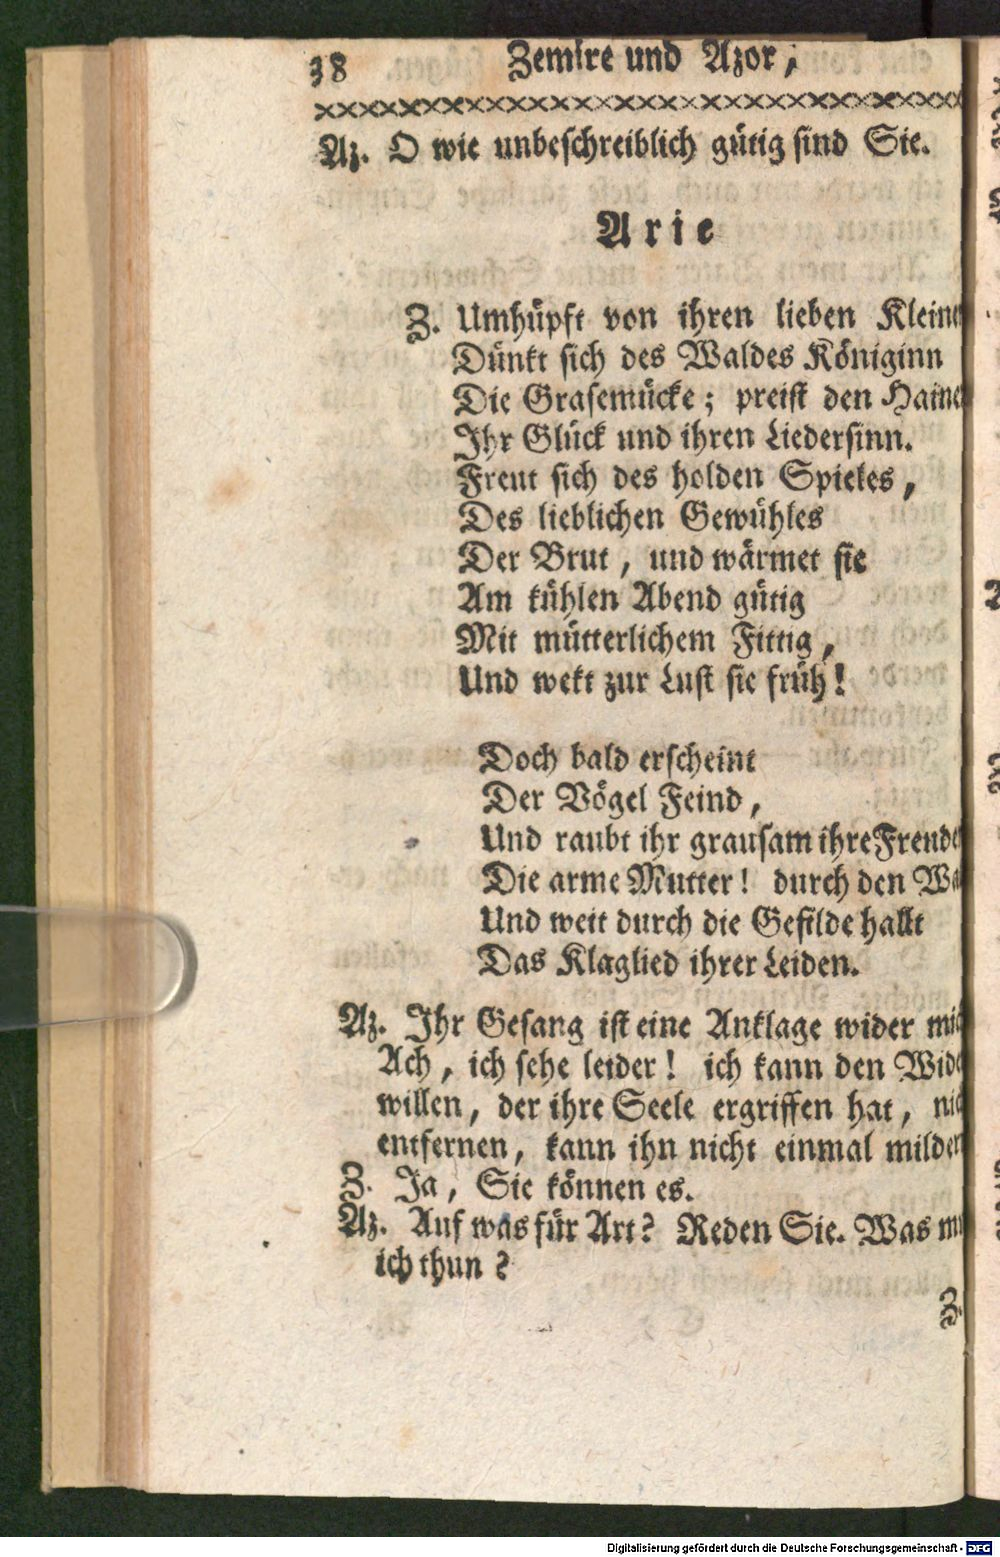 38 Zemire und Azor,
Az. O wie unbeschreiblich gütig sind Sie.
Arie
Z. Umhüpft von ihren lieben Kleine
Dünkt sich des Waldes Königinn
Die Grasemücke; preist den Haine
Ihr Glück und ihren Liedersinn.
Freut sich des holden Spieles,
Des lieblichen Gewühles
Der Brut, und wärmet sie
Am kühlen Abend gütig
Mit mütterlichem Fittig,
Und wekt zur Lust sie früh!
Doch bald erscheint
Der Vögel Feind,
Und raubt ihr grausam ihre Freude
Die arme Mutter! durch den Wa
Und weit durch die Gefilde hallt
Das Klaglied ihrer Leiden.
Az. Ihr Gesang ist eine Anklage wider mic
Ach, ich sehe leider! ich kann den Wide
willen, der ihre Seele ergriffen hat, nic
entfernen, kann ihn nicht einmal milder
Z. Ja, Sie können es.
Az. Auf was für Art? Reden Sie. Was mu
ich thun?
Z.
Digitalisierung gefördert durch die Deutsche Forschungsgemeinschaft - DFG